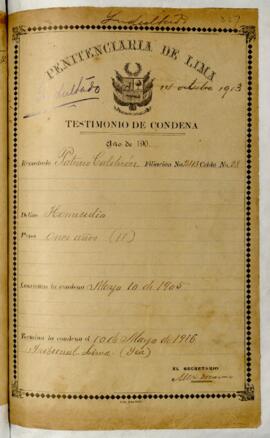 Indultado
PENITENCIARIA DE LIMA
Indultado
14 octubre 1913
TESTIMONIO DE CONDENA
Año de 190
Rematado Calderón Filiación No. Celda No.
Delito Homicidio
Pena Once años (11)
Comienza la condena Mayo 10 de 1905
Termina la condena el 10 de Mayo de 1916
Tribunal Lima (Ica)
EL SECRETARIO